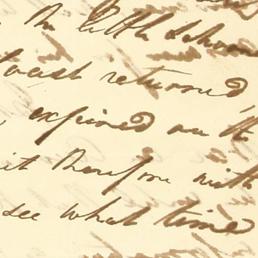 the little schoon
cash returned
expired on th
it therefore with
see what time